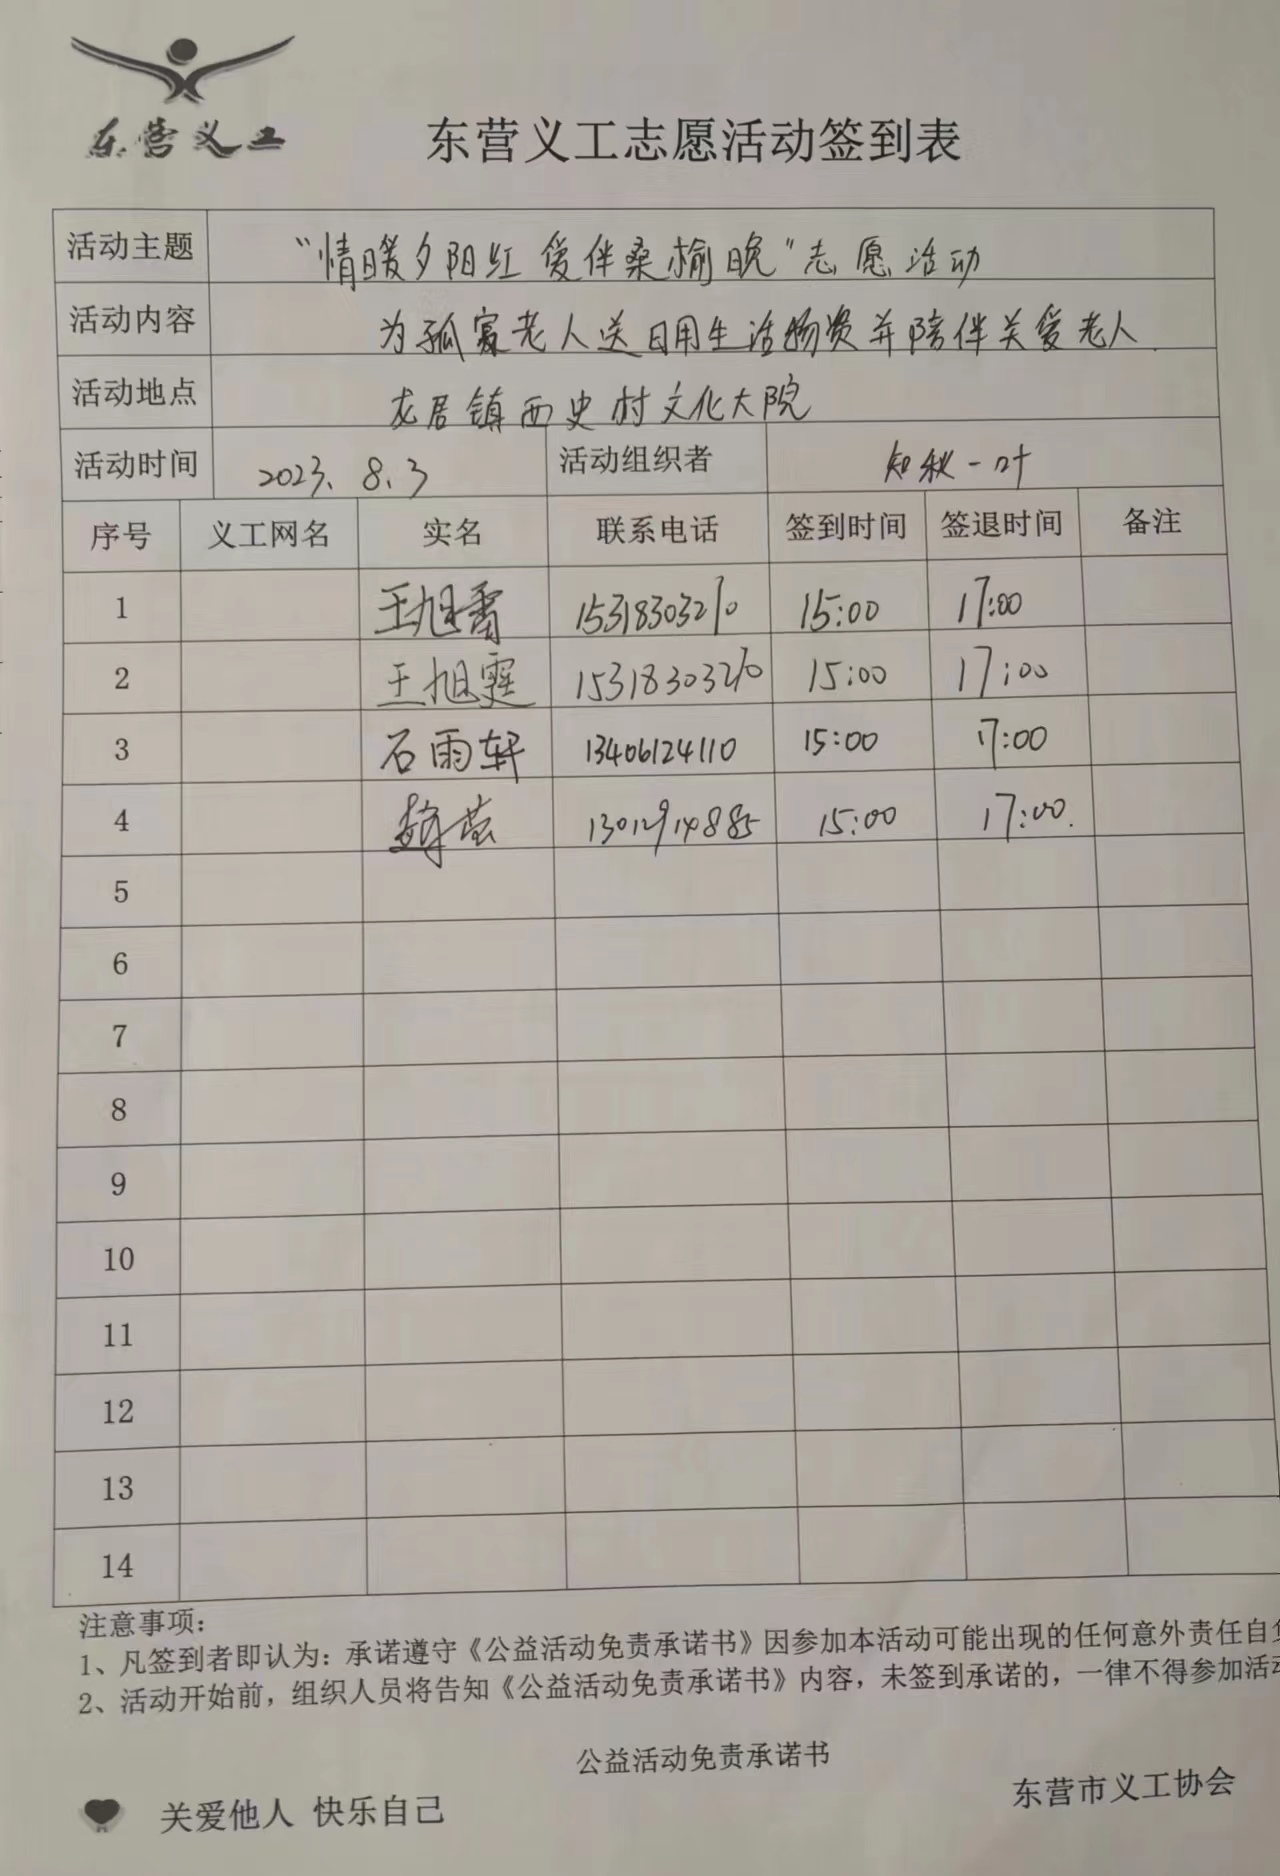 东营义工
东营义工志愿活动签到表
活动主题 “情暖夕阳红 爱伴桑榆晚”志愿活动
活动内容 为孤寡老人送日用生活物资并陪伴关爱老人.
活动地点 龙居镇西史村文化大院
活动时间 2023.8.3 活动组织者 知秋一叶
序号 义工网名 实名 联系电话 签到时间 签退时间 备注
1 王旭 15318303210 15:00 17:00
2 王旭霆 15318303210 15:00 17:00
3 石雨轩 13406124110 15:00 17:00
4 15:00 17:00.
5
6
7
8
9
10
11
12
13
14
注意事项：
1、凡签到者即认为：承诺遵守《公益活动免责承诺书》因参加本活动可能出现的任何意外责任自负
2、活动开始前，组织人员将告知《公益活动免责承诺书》内容，未签到承诺的，一律不得参加活动
公益活动免责承诺书
东营市义工协会
关爱他人 快乐自己